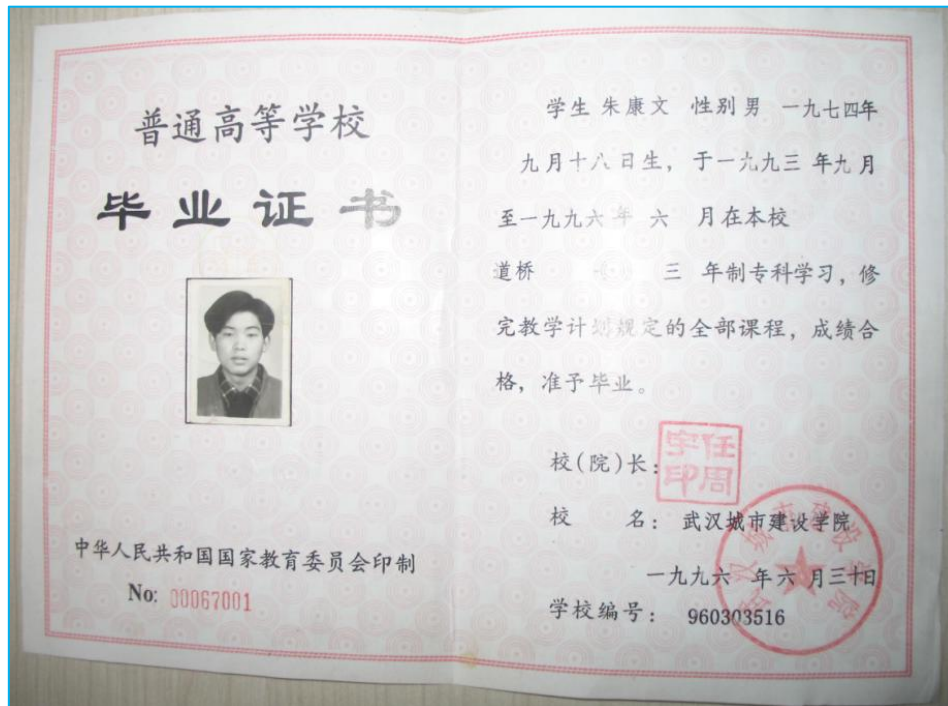 普通高等学校
毕业证书
中华人民共和国国家教育委员会印制
No: 00067001
学生 朱康文 性别 男 一九七四年
九月十八日生，于一九九三 年九月
至一九九六年 六 月在本校
道桥 三 年制专科学习，修
完教学计划规定的全部课程，成绩合
格，准予毕业。
校(院)长：
任周宇印
校 名： 武汉城市建设学院
一九九六 年六 月三十日
学校编号： 960303516
武汉城市建设学院